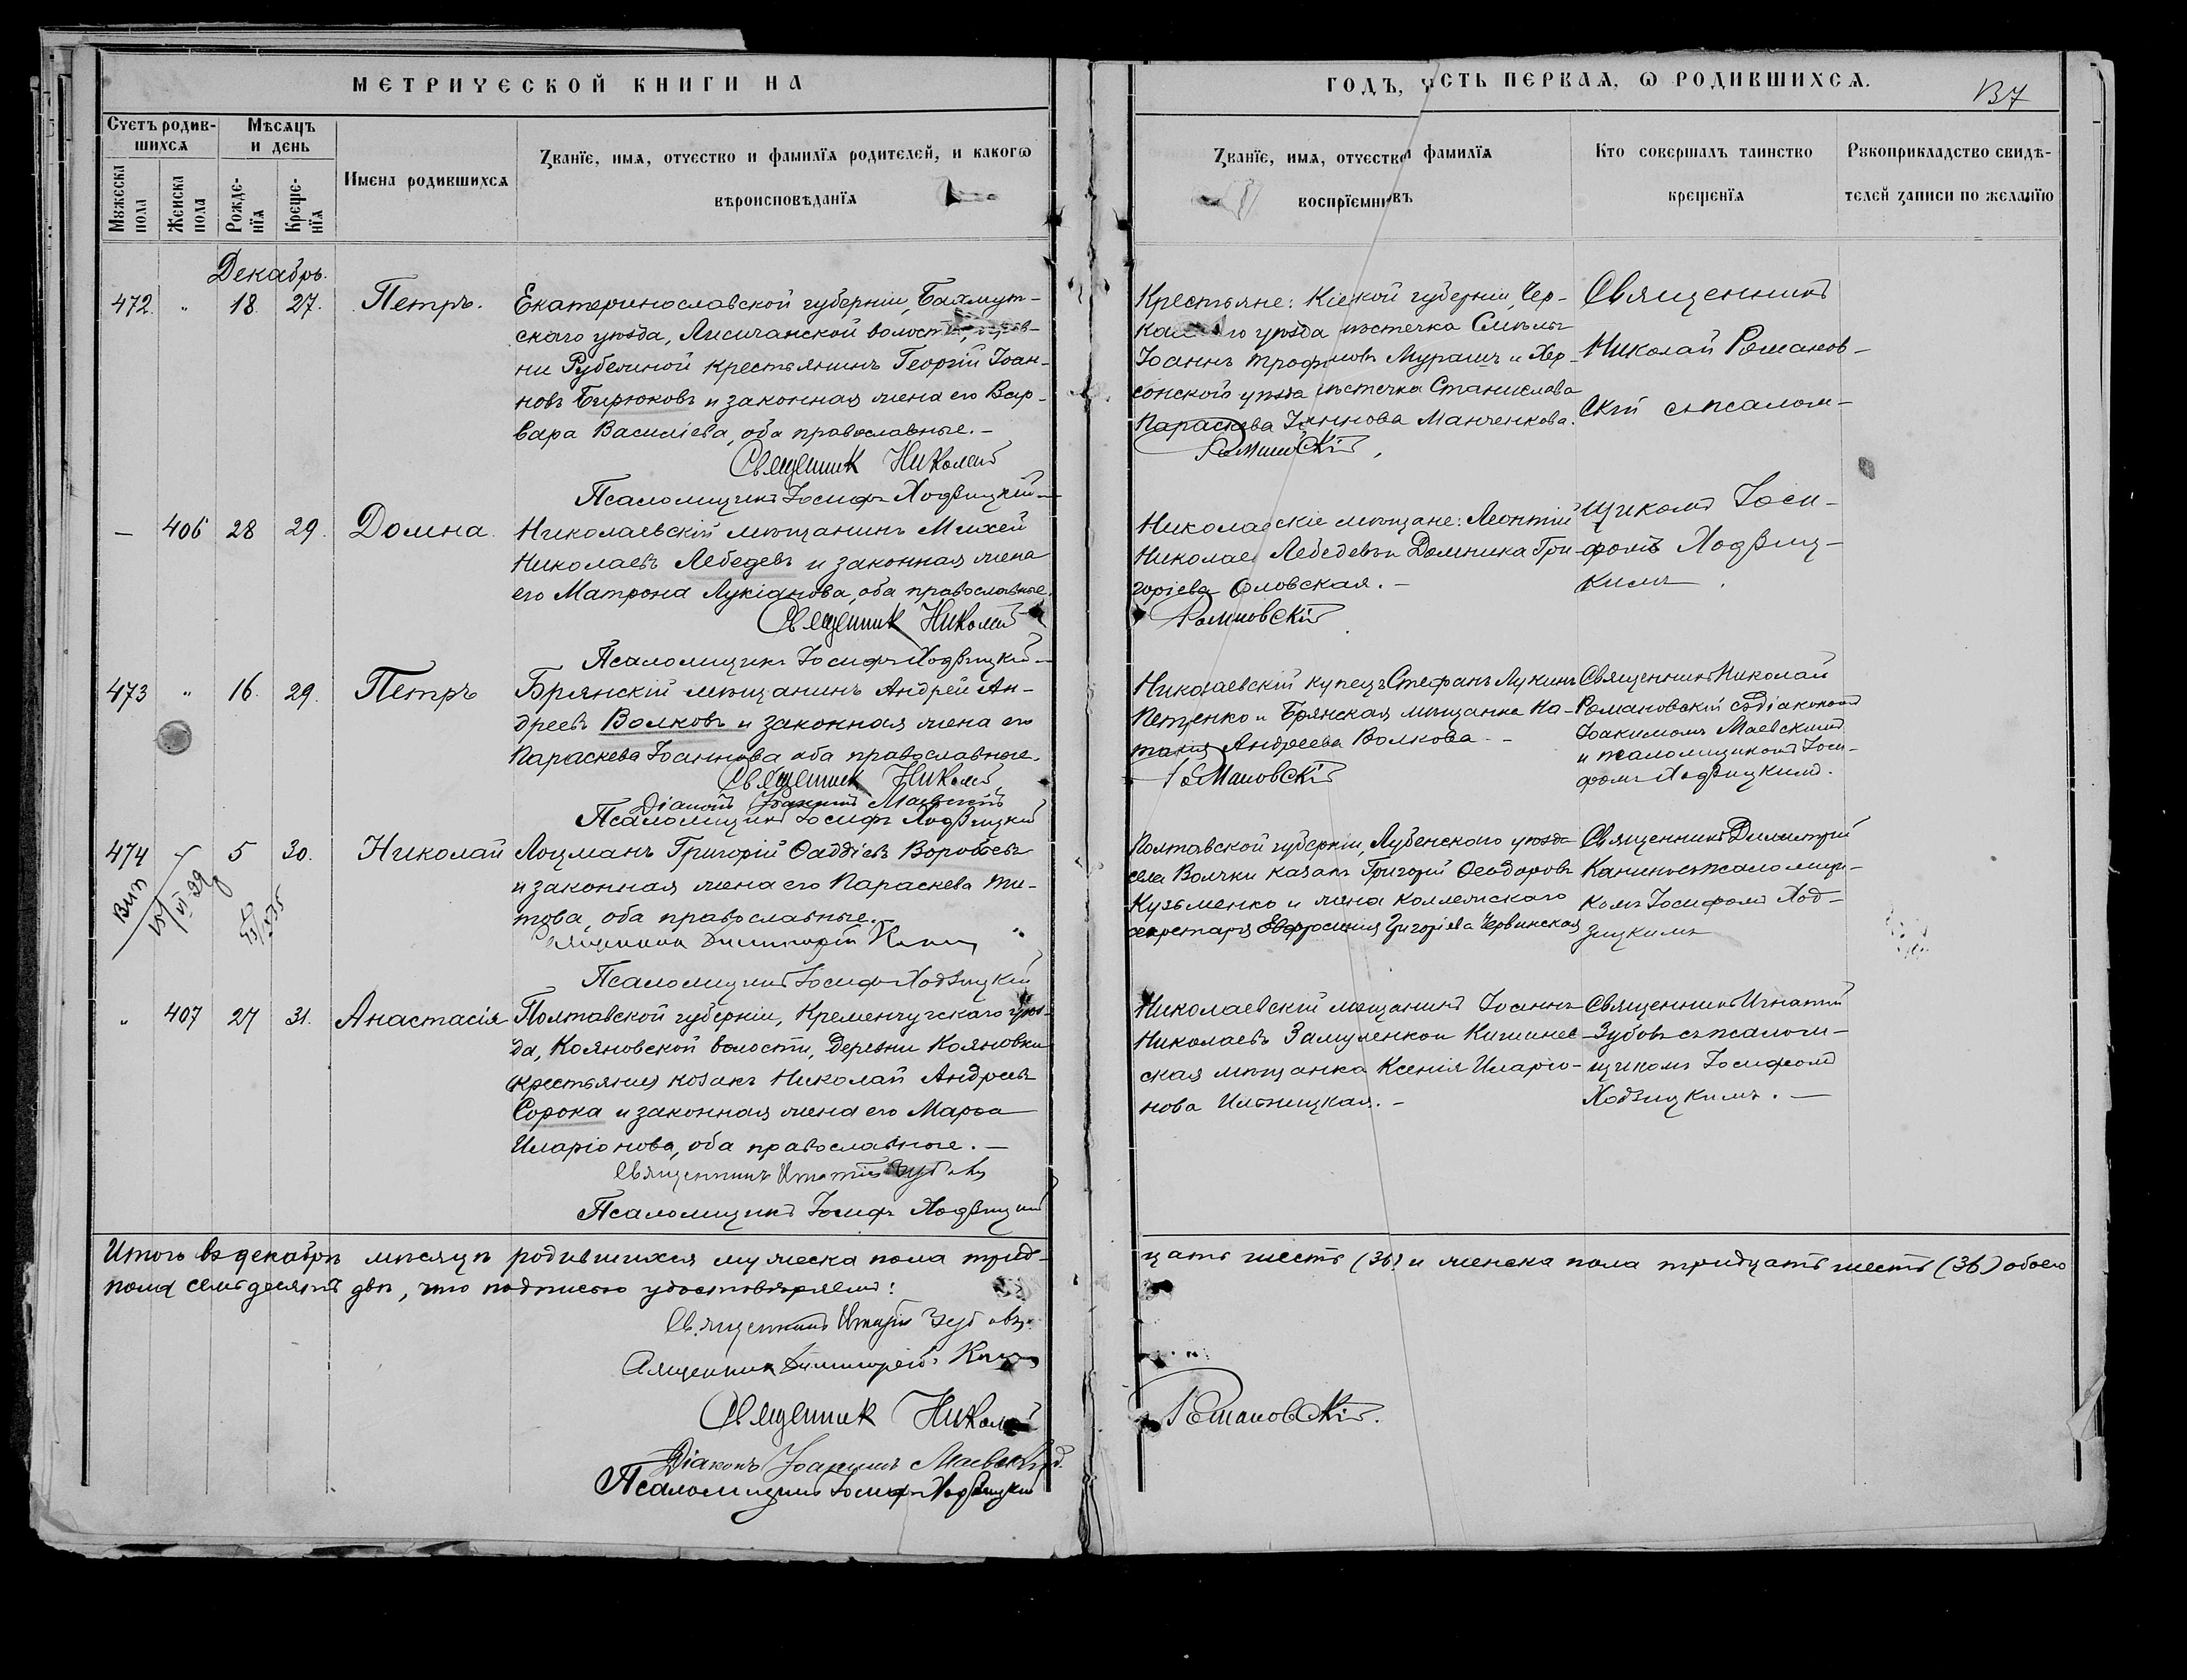 МЕТРИЧЕСКОЙ КНИГИ НА
ГОДЪ, ЧСТЬ ПЕРВАЯ, Ѡ РОДИВШИХСЯ.
137
Счетъ родив-
шихся
Мѣсяцъ
и день
Мужеска пола
Женска пола
Рожде-
нїя
Креще-
нїя
Имена родившихся
Званїе, имя, отчество и фамилїя родителей, и какогѡ
вѣроисповѣданїя
Званїе, имя, отчество и фамилїя
воспрїемниковъ
Кто совершалъ таинство
крещенїя
Рукоприкладство свидѣ-
телей записи по желанїю
Декабрь.
472. " 18. 27. Петръ.
Екатеринославской губерніи, Бахмут-
скаго уѣзда, Лисичанской волости, дерев-
ни Рубежной крестьянинъ Георгій Іоан-
новъ Бирюковъ и законная жена его Вар-
вара Василіева, оба православные. —
Священникъ Николай
Псаломщикъ Іосифъ Ходзицкій
Крестьяне: Кіевской губерніи, Чер-
каскаго уѣзда мѣстечка Смѣлы
Іоаннъ Трофимовъ Мурашъ и Хер-
сонскаго уѣзда мѣстечка Станислава
Параскева Іоаннова Манченкова.
Романовскій
Священникъ
Николай Романов-
скій съ псалом-
щикомъ Іоси-
фомъ Ходзиц-
кимъ
— 406 28 29. Домна.
Николаевскій мѣщанинъ Михей
Николаевъ Лебедевъ и законная жена
его Матрона Лукіанова, оба православные.
Священникъ Николай
Псаломщикъ Іосифъ Ходзицкій
Николаевскіе мѣщане: Леонтій
Николаевъ Лебедевъ и Домника Гри-
горіева Орловская. —
Романовскій
473 " 16. 29. Петръ
Брянскій мѣщанинъ Андрей Ан-
дреевъ Волковъ и законная жена его
Параскева Іоаннова оба православные.
Священникъ Николай
Діаконъ Іоакимъ Маевскій
Псаломщикъ Іосифъ Ходзицкій
Николаевскій купецъ Стефанъ Лукинъ
Петренко и Брянская мѣщанка На-
талія Андреева Волкова —
Романовскій
Священникъ Николай
Романовскій съ діакономъ
Іоакимомъ Маевскимъ
и псаломщикомъ Іоси-
фомъ Ходзицкимъ.
474 5 30. Николай
Лоцманъ Григорій Фаддіевъ Воробьевъ
и законная жена его Параскева Ти-
това, оба православные. —
Священникъ Димитрій
Псаломщикъ Іосифъ Ходзицкій
Полтавской губерніи, Лубенскаго уѣзда
села Волчки казакъ Григорій Ѳеодоровъ
Кузьменко и жена коллежскаго
секретаря Евфросинія Григоріева Червинская
Священникъ Димитрій
Канинъ съ псаломщи-
комъ Іосифомъ Ход-
зицкимъ
" 407 27 31. Анастасія
Полтавской губерніи, Кременчугскаго уѣз-
да, Кояновской волости, деревни Кояновки
крестьянинъ козакъ Николай Андреевъ
Сорока и законная жена его Марѳа
Иларіонова, оба православные. —
Священникъ Игнатій Зубовъ
Псаломщикъ Іосифъ Ходзицкій
Николаевскій мѣщанинъ Іоаннъ
Николаевъ Замуленко и Кишинев-
ская мѣщанка Ксенія Иларіо-
нова Ильницкая. —
Священникъ Игнатій
Зубовъ съ псалом-
щикомъ Іосифомъ
Ходзицкимъ. —
Итого въ декабрѣ мѣсяцѣ родившихся мужеска пола трид-
цать шесть (36) и женска пола тридцать шесть (36) обоего
пола семьдесятъ два, что подписью удостовѣряемъ:
Священникъ Игнатій Зубовъ.
Священникъ Димитрій
Священникъ Николай
Романовскій.
Діаконъ Іоакимъ Маевскій.
Псаломщикъ Іосифъ Ходзицкій